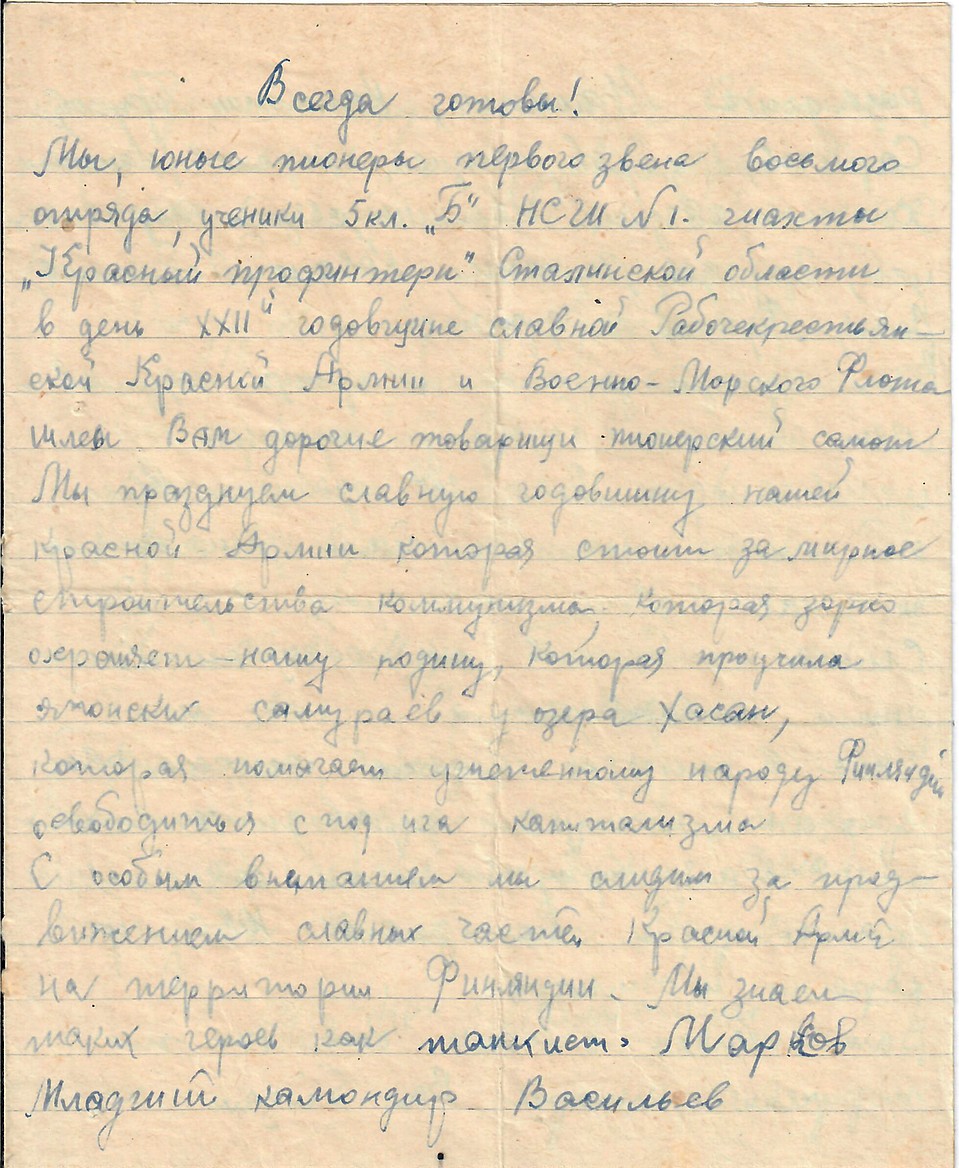 Всегда готовы!
Мы, юные пионеры первого звена восьмого
отряда, ученики 5 кл. „Б" НСШ N 1. шахты
„Красный профинтерн" Сталинской области
в день XXIIй годовщине славной Рабочекрестьян-
ской Красной Армии и Военно-Морского Флота
шлем Вам дорогие товарищи пионерский салют
Мы празднуем славную годовшину нашей
Красной Армии которая стоит за мирное
строительства коммунизма, которая зорко
охраняет нашу родину, которая проучила
японских самураев у озера Хасан,
которая помогает угнетенному народу Финляндии
освободиться с под ига капитализма
С особым вниманием мы следим за прод-
вижением славных частей Красной Армии
на территории Финляндии. Мы знаем
таких героев как танкист Марков
Младший камондир Васильев